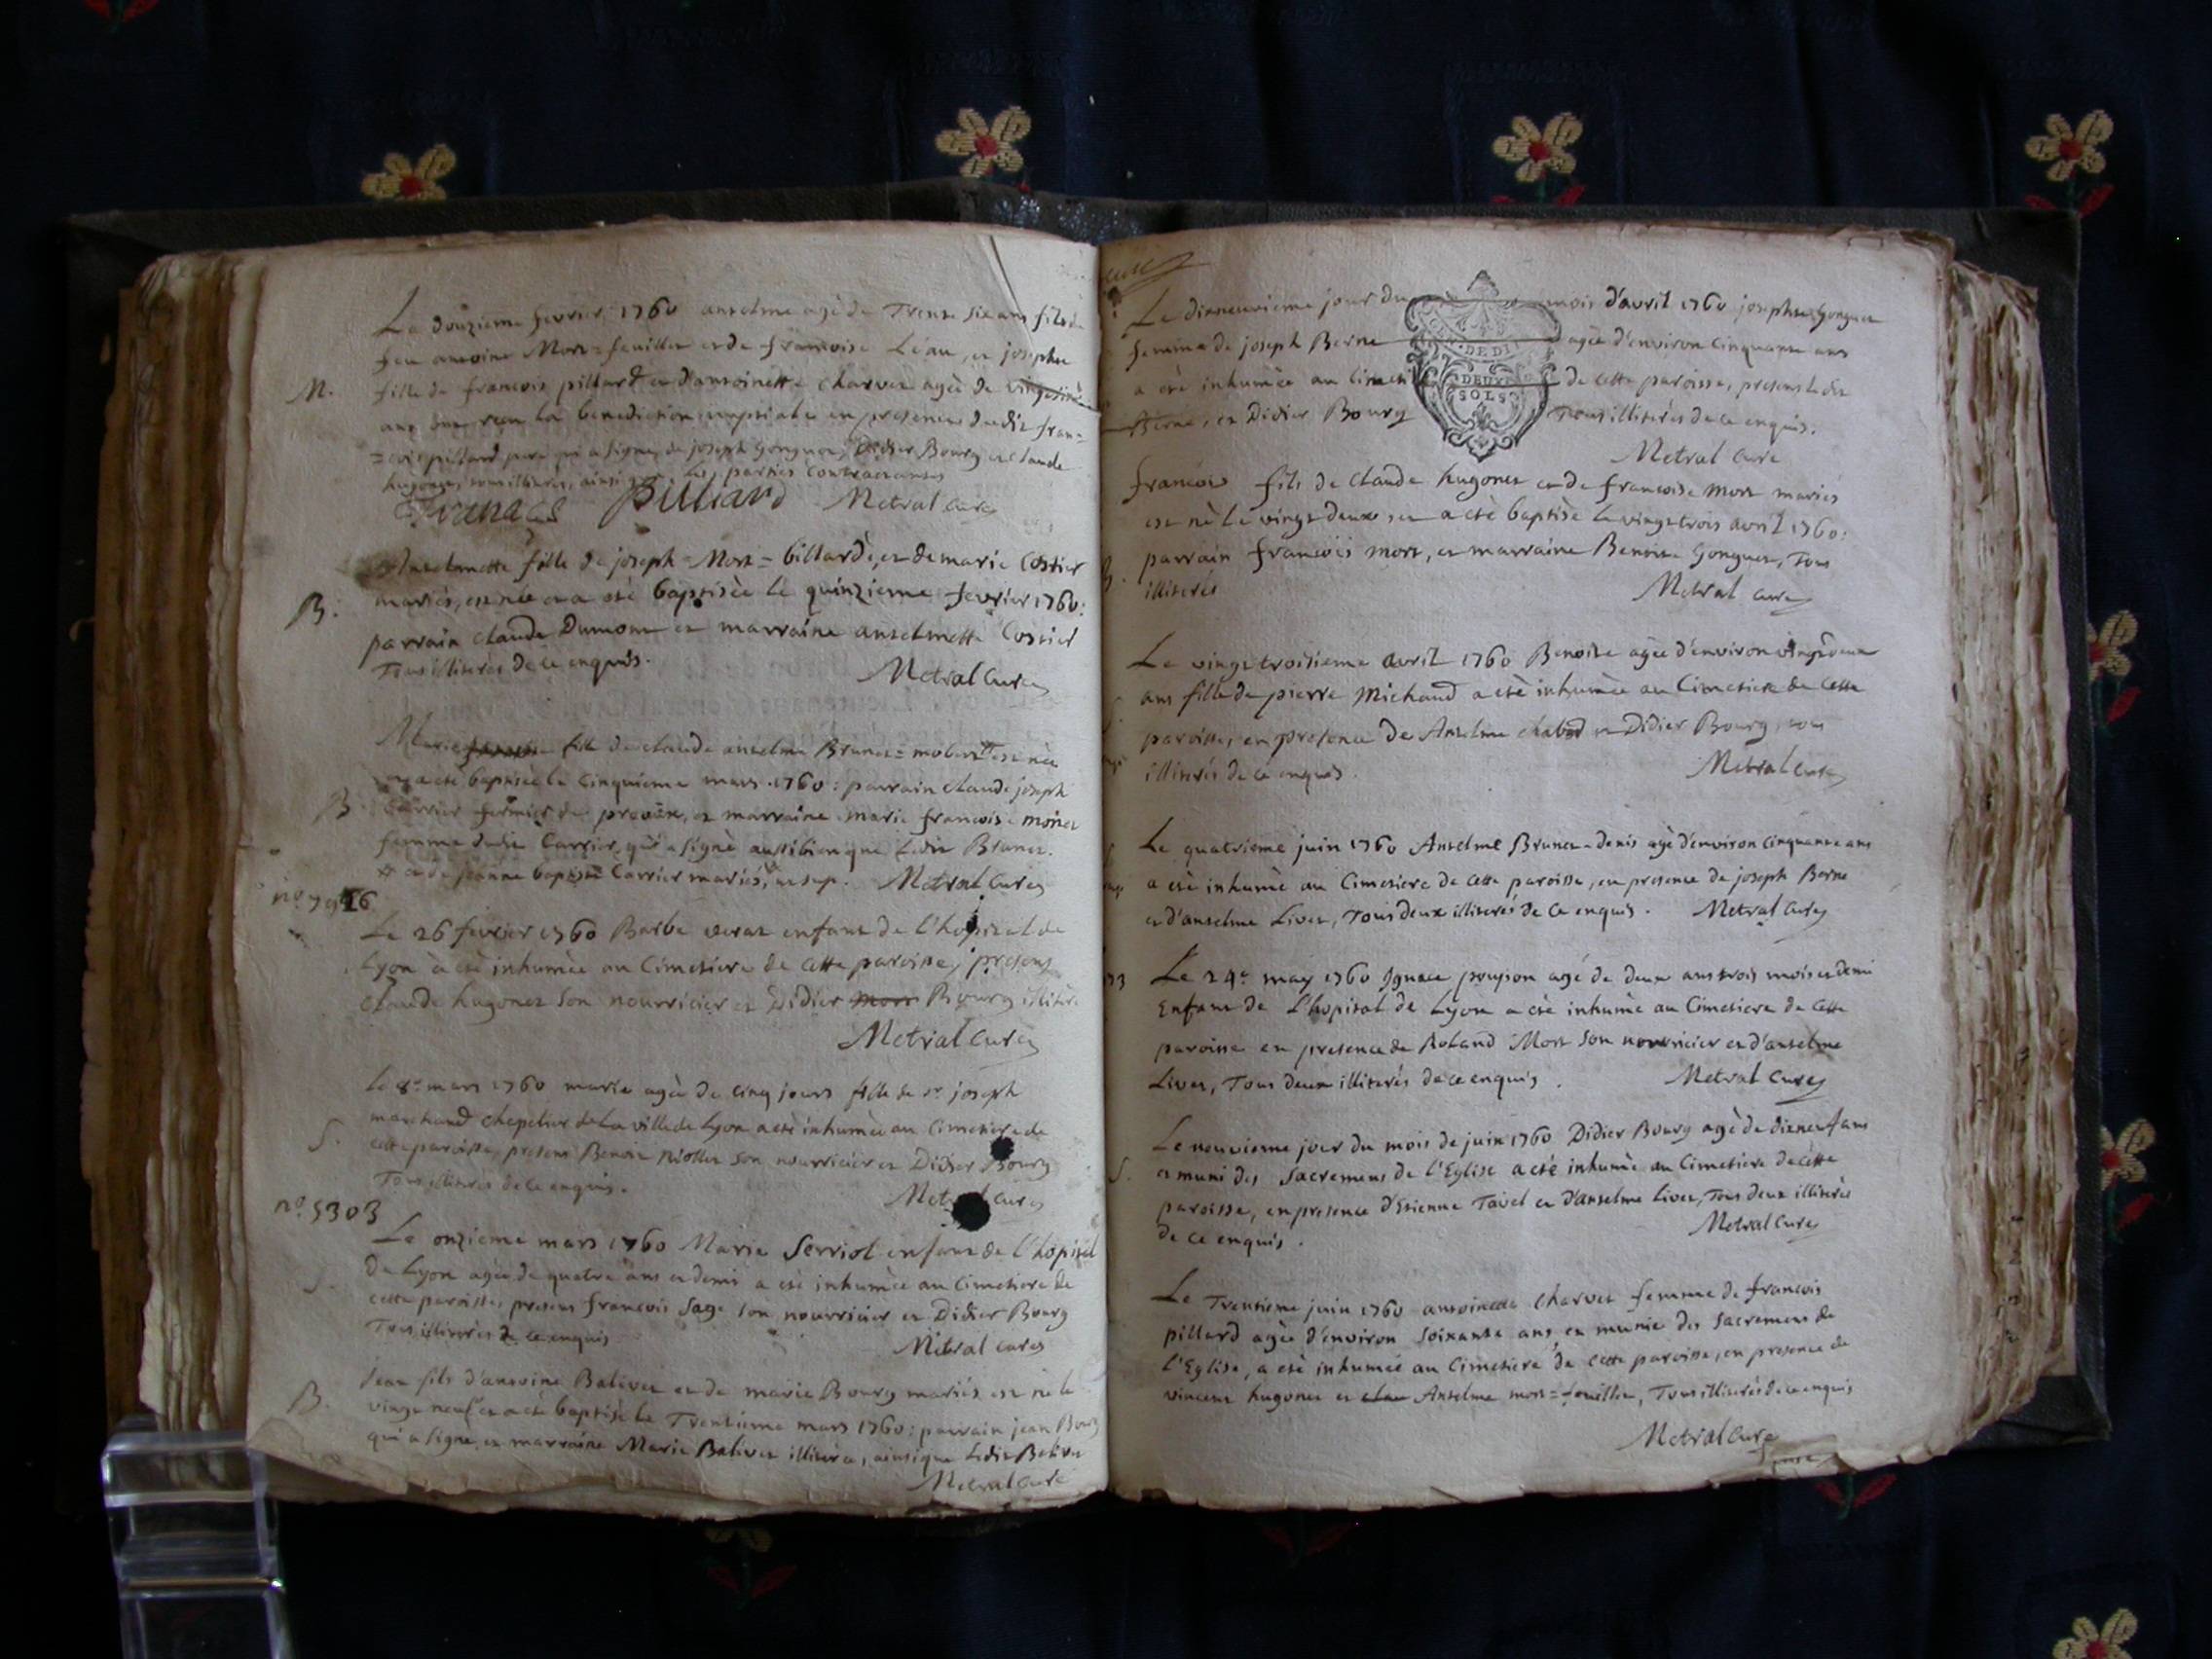 Le douzieme fevrier 1760 anselme agé de Trente six ans fils de
feu antoine Mort=feuillet et de francoise Léau, et josephte
M. fille de francois pillard et d'antoinette charvet agée de
ans ont reçu la benediction nuptiale en presence dudit fran=
=cois pillard pere qui a signé, de joseph Gonguet, Didier Bourg et claude
hugonet, tous illiterés, ainsi que les parties Contractantes
Billiard Metral Curé
Anselmette fille de joseph Mort=billard, et de marie Costier
B. mariés, est née et a eté baptisée le quinzieme fevrier 1760:
parrain claude Dumont et marraine anselmette Costier
Tous illiterés de ce enquis.
Metral Curé
Marie fille de claude anselme Brunet=mobert est née
et a eté baptisée le Cinquieme mars 1760: parrain claude joseph
B. Carrier fermier de et marraine marie francoise moner
femme dudit Carrier, qui a signé aussibien que Ledit Brunet.
et de jeanne baptiste Carrier mariés, Metral Curé
n°.
Le 26 fevrier 1760 Barbe verat enfant de l'hopital de
Lyon a eté inhumée au Cimetiere de cette paroisse, presens
claude hugonet Son nourricier et Didier Bourg
Metral Curé
Le 8e. mars 1760 marie agée de cinq jours fille de sr. joseph
marchand chapelier de la ville de Lyon a eté inhumée au Cimetiere de
S. cette paroisse, presens Benoit Son nourricier et Didier Bourg
Tous illiterés de ce enquis.
Metral Curé
n°. 5303
Le onzieme mars 1760 Marie Serriol enfant de l'hopital
De Lyon agée de quatre ans et demi a eté inhumée au Cimetiere de
S. cette paroisse, presens francois Sage son nourricier et Didier Bourg
Tous illiterés de ce enquis
Metral Curé
B. Jean fils d'antoine Balivet et de marie Bourg mariés est né le
vingt neuf et a eté baptisé le Trentieme mars 1760: parrain jean Bourg
qui a signé, et marraine Marie Balivet illiterée, ainsi que Ledit Balivet
Metral Curé
Le dixneuvieme jour du mois d'avril 1760 josephte Gonguet
femme de joseph Berne agée d'environ Cinquante ans
a eté inhumée au Cimetiere de cette paroisse, presens Ledit
Berne, et Didier Bourg Tous illiterés de ce enquis.
DEUX
SOLS
Metral Curé
francois fils de claude hugonet et de francoise mort mariés
est né le vingt deux, et a eté baptisé le vingt trois avril 1760:
parrain francois mort, et marraine Benoite Gonguet, Tous
B. illiterés
Metral Curé
Le vingt troisieme avril 1760 Benoite agée d'environ vingt deux
ans fille de pierre Michaud a eté inhumée au Cimetiere de cette
paroisse, en presence de Anselme chabod et Didier Bourg, tous
illiterés de ce enquis.
Metral Curé
Le quatrieme juin 1760 Anselme Brunet=denis agé d'environ Cinquante ans
a eté inhumé au Cimetiere de cette paroisse, en presence de joseph Berne
et d'anselme Livet, Tous deux illiterés de ce enquis. Metral Curé
Le 24e. may 1760 Ignace poupon agé de deux ans trois mois et demi
Enfant de L'hopital de Lyon a eté inhumé au Cimetiere de cette
paroisse en presence de Roland Mort Son nourricier et d'anselme
Livet, Tous deux illiterés de ce enquis. Metral Curé
Le neuvieme jour du mois de juin 1760 Didier Bourg agé de dixneuf ans
S. et muni des Sacremens de l'Eglise a eté inhumé au Cimetiere de cette
paroisse, en presence d'Etienne Tavel et d'anselme Livet, Tous deux illiterés
de ce enquis.
Metral Curé
Le Trentieme juin 1760 antoinette Charvet femme de francois
pillard agée d'environ Soixante ans, et munie des Sacremens de
l'Eglise, a eté inhumée au Cimetiere de cette paroisse, en presence de
vincent hugonet et Anselme mort=feuillet, Tous illiterés de ce enquis
Metral Curé